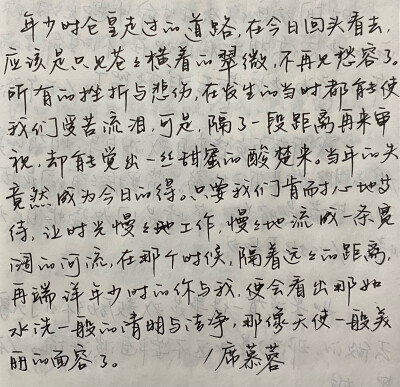 年少时仓皇走过的道路，在今日回头看去，
应该是只见苍々横着的翠微，不再见愁容了。
所有的挫折与悲伤，在发生的当时都能使
我们受苦流泪，可是，隔了一段距离再来审
视，却能觉出一丝甜蜜的酸楚来。当年的失
竟然成为今日的得。只要我们肯耐心地等
待，让时光慢々地工作，慢々地流成一条宽
阔的河流，在那个时候，隔着远々的距离，
再端详年少时的你与我，便会看出那如
水洗一般的清明与洁净，那像天使一般美
丽的面容了。 /席慕蓉